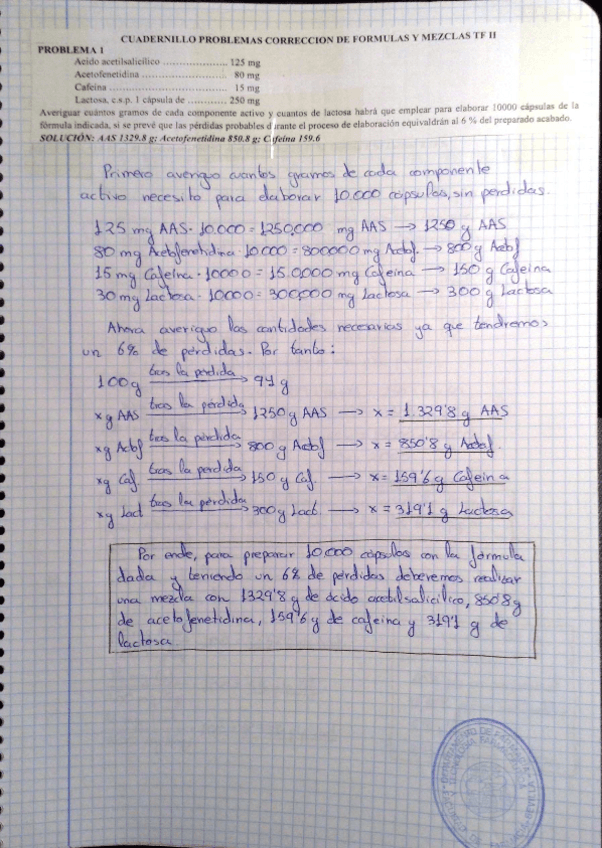 CUADERNILLO PROBLEMAS CORRECCION DE FORMULAS Y MEZCLAS TF II
PROBLEMA 1
Acido acetilsalicílico .................... 125 mg
Acetofenetidina .......................... 80 mg
Cafeína .................................... 15 mg
Lactosa, c.s.p. 1 cápsula de ............ 250 mg
Averiguar cuántos gramos de cada componente activo y cuantos de lactosa habrá que emplear para elaborar 10000 cápsulas de la
fórmula indicada, si se prevé que las pérdidas probables durante el proceso de elaboración equivaldrán al 6 % del preparado acabado.
SOLUCIÓN: AAS 1329.8 g; Acetofenetidina 850.8 g; Cafeína 159.6
Primero averiguo cuantos gramos de cada componente
activo necesito para elaborar 10.000 cápsulas, sin perdidas.
125 mg AAS · 10.000 = 1250.000 mg AAS → 1250 g AAS
80 mg Acetofenetidina · 10.000 = 800000 mg Acetof. → 800 g Acetof
15 mg Cafeína · 10000 = 15.0000 mg Cafeína → 150 g Cafeína
30 mg Lactosa · 10000 = 300.000 mg Lactosa → 300 g Lactosa
Ahora averiguo las cantidades necesarias ya que tendremos
un 6% de pérdidas. Por tanto:
100 g tras la perdida → 94 g
x g AAS tras la pérdida → 1250 g AAS → x = 1.329'8 g AAS
x g Acetof tras la pérdida → 800 g Acetof → x = 850'8 g Acetof.
x g Caf. tras la perdida → 150 g Caf → x = 159'6 g Cafeina
x g Lact tras la perdida → 300 g Lact. → x = 319'1 g Lactosa
Por ende, para preparar 10.000 cápsulas con la fórmula
dada y teniendo un 6% de pérdidas deberemos realizar
una mezcla con 1329'8 g de ácido acetilsalicílico, 850'8 g
de acetofenetidina, 159'6 g de cafeína y 319'1 g de
lactosa.